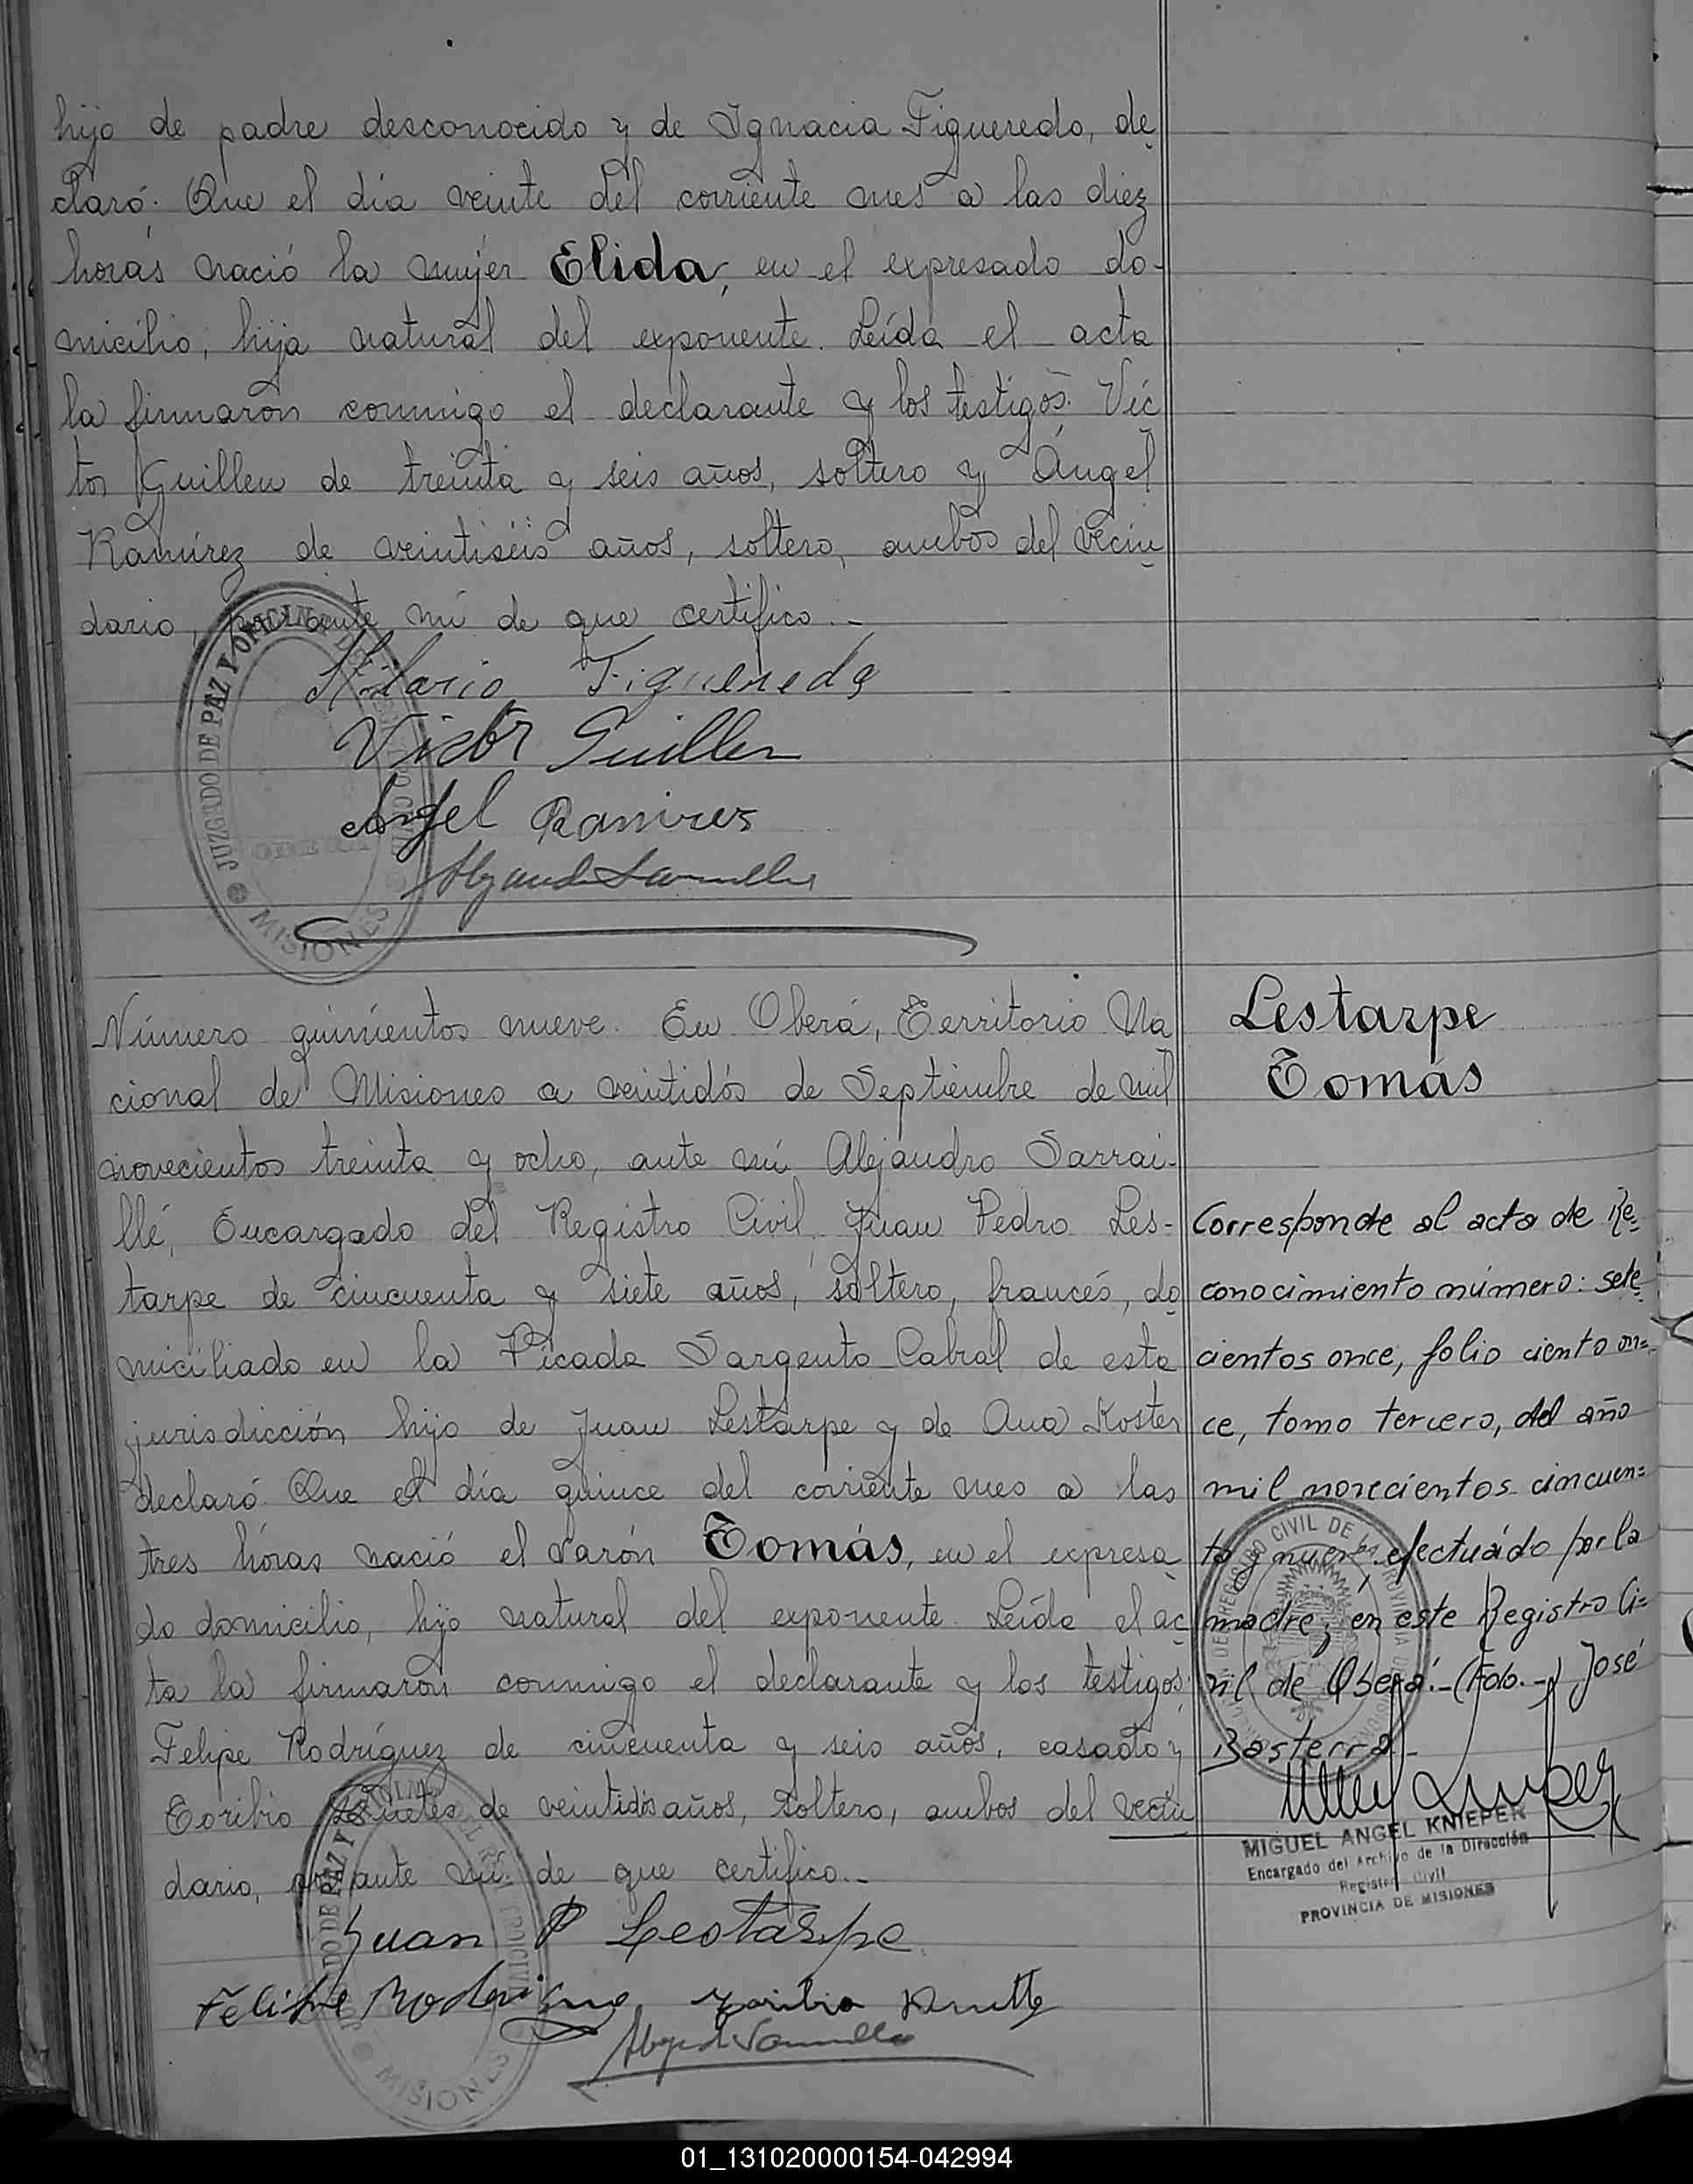 hijo de padre desconocido y de Ignacia Figueredo, de
claró: Que el día veinte del corriente mes a las diez
horas nació la mujer Elida, en el expresado do-
micilio, hija natural del exponente. Leída el acta
la firmaron conmigo el declarante y los testigos: Víc
tor Guillen de treinta y seis años, soltero y Ángel
Ramírez de veintiseis años, soltero, ambos del vecin
dario, por ante mí de que certifico.-
Hilario Figueredo
Victor Guillen
Angel Ramires
JUZGADO DE PAZ Y OFICINA DE
MISIONES
Número quinientos nueve. En Oberá, Territorio Na
cional de Misiones a veintidós de Septiembre de mil
novecientos treinta y ocho, ante mí Alejandro Sarrai-
llé, Encargado del Registro Civil, Juan Pedro Les-
tarpe de cincuenta y siete años, soltero, francés, do
miciliado en la Picada Sargento Cabral de esta
jurisdicción hijo de Juan Lestarpe y de Ana Koster
declaró: Que el día quince del corriente mes a las
tres horas nació el varón Tomás, en el expresa
do domicilio, hijo natural del exponente. Leída el ac
ta la firmaron conmigo el declarante y los testigos:
Felipe Rodríguez de cincuenta y seis años, casado y
Toribio de veintidós años, soltero, ambos del vecin
dario, por ante mí de que certifico.-
Juan P Lestarpe
Felipe Rodriguez
MISIONES
Lestarpe
Tomás
Corresponde al acta de Re=
conocimiento número: sete
cientos once, folio ciento on=
ce, tomo tercero, del año
mil novecientos cincuen=
ta y nueve, efectuado por la
madre; en este Registro Ci=
vil de Oberá.-(Fdo.-) José
Basterra-
MIGUEL ANGEL KNIEPER
Encargado del Archivo de la Dirección
Registro Civil
PROVINCIA DE MISIONES
01_131020000154-042994